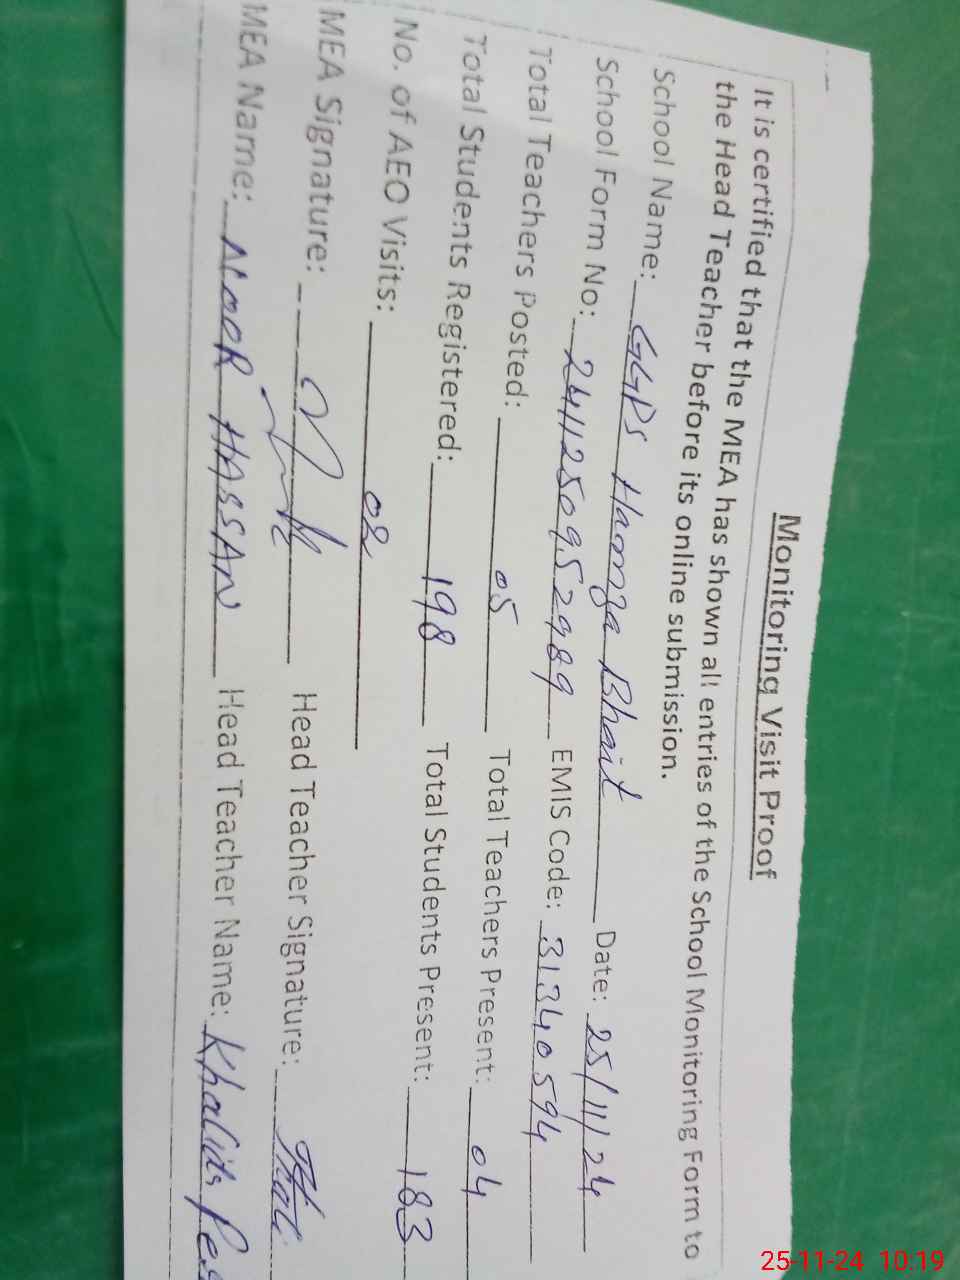 Monitoring Visit Proof
It is certified that the MEA has shown all entries of the School Monitoring Form to
the Head Teacher before its online submission.
School Name: GGPS Hamza Bhait Date: 25/11/24
School Form No: 2411250952989 EMIS Code: 31340594
Total Teachers Posted: 05 Total Teachers Present: 04
Total Students Registered: 198 Total Students Present: 183
No. of AEO Visits: 02
MEA Signature: Head Teacher Signature:
MEA Name: NOOR HASSAN Head Teacher Name: Khalida
25-11-24 10:19